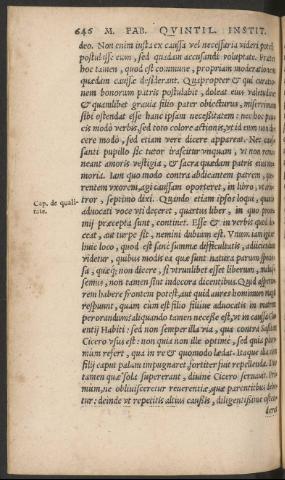 646 M. FAB. QVINTIL. INSTIT.
deo. Non enim iusta ex caussa vel necessaria videri potest
postulasse eum, sed quadam accusandi voluptate. Præter
hoc tamen, quod est commune, propriam moderationem
quædam caussæ desiderant. Quapropter & qui curatio-
nem bonorum patris postulabit, doleat eius valetudine
& quamlibet grauia filio pater obiecturus, miserrimam
sibi ostendat esse hanc ipsam necessitatem: nec hoc pau-
cis modò verbis, sed toto colore actionis, vt id eum non di-
cere modò, sed etiam verè dicere appareat. Nec
santi pupillo sic tutor irascatur vnquam, vt non rema-
neant amoris vestigia, & sacra quædam patris eius me-
moria. Iam quo modo contra abdicantem patrem, que-
rentem vxorem, agi caussam oporteret, in libro, vt arbi-
tror, septimo dixi. Quando etiam ipsos loqui, quando
Cap. de quali-
tate.
aduocati voce vti deceret, quartus liber, in quo prooe-
mij præcepta sunt, continet. Esse & in verbis quod de-
ceat, aut turpe sit, nemini dubium est. Vnum iam igitur
huic loco, quod est sanè summæ difficultatis, adijciendum
videtur, quibus modis ea quæ sunt natura parum specio-
sa, quæq; non dicere, si vtrumlibet esset liberum, maluis-
semus, non tamen sint indecora dicentibus. Quid asperio-
rem habere frontem potest, aut quid aures hominum magis
respuunt, quam cum est filio filiiue aduocatis in matrem
perorandum? aliquando tamen necesse est, vt in caussa Clu-
entij Habiti: sed non semper illa via, qua contra Sasiam
Cicero vsus est: non quia non ille optimè, sed quia pluri-
mum refert, qua in re & quomodo lædat. Itaque illa cum
filij caput palam impugnaret, fortiter fuit repellenda. Duo
tamen quæ sola supererant, diuinè Cicero seruauit. Pri-
mum, ne obliuisceretur reuerentiæ, quæ parentibus debe-
tur: deinde vt repetitis altius caussis, diligentissimè osten-
deret